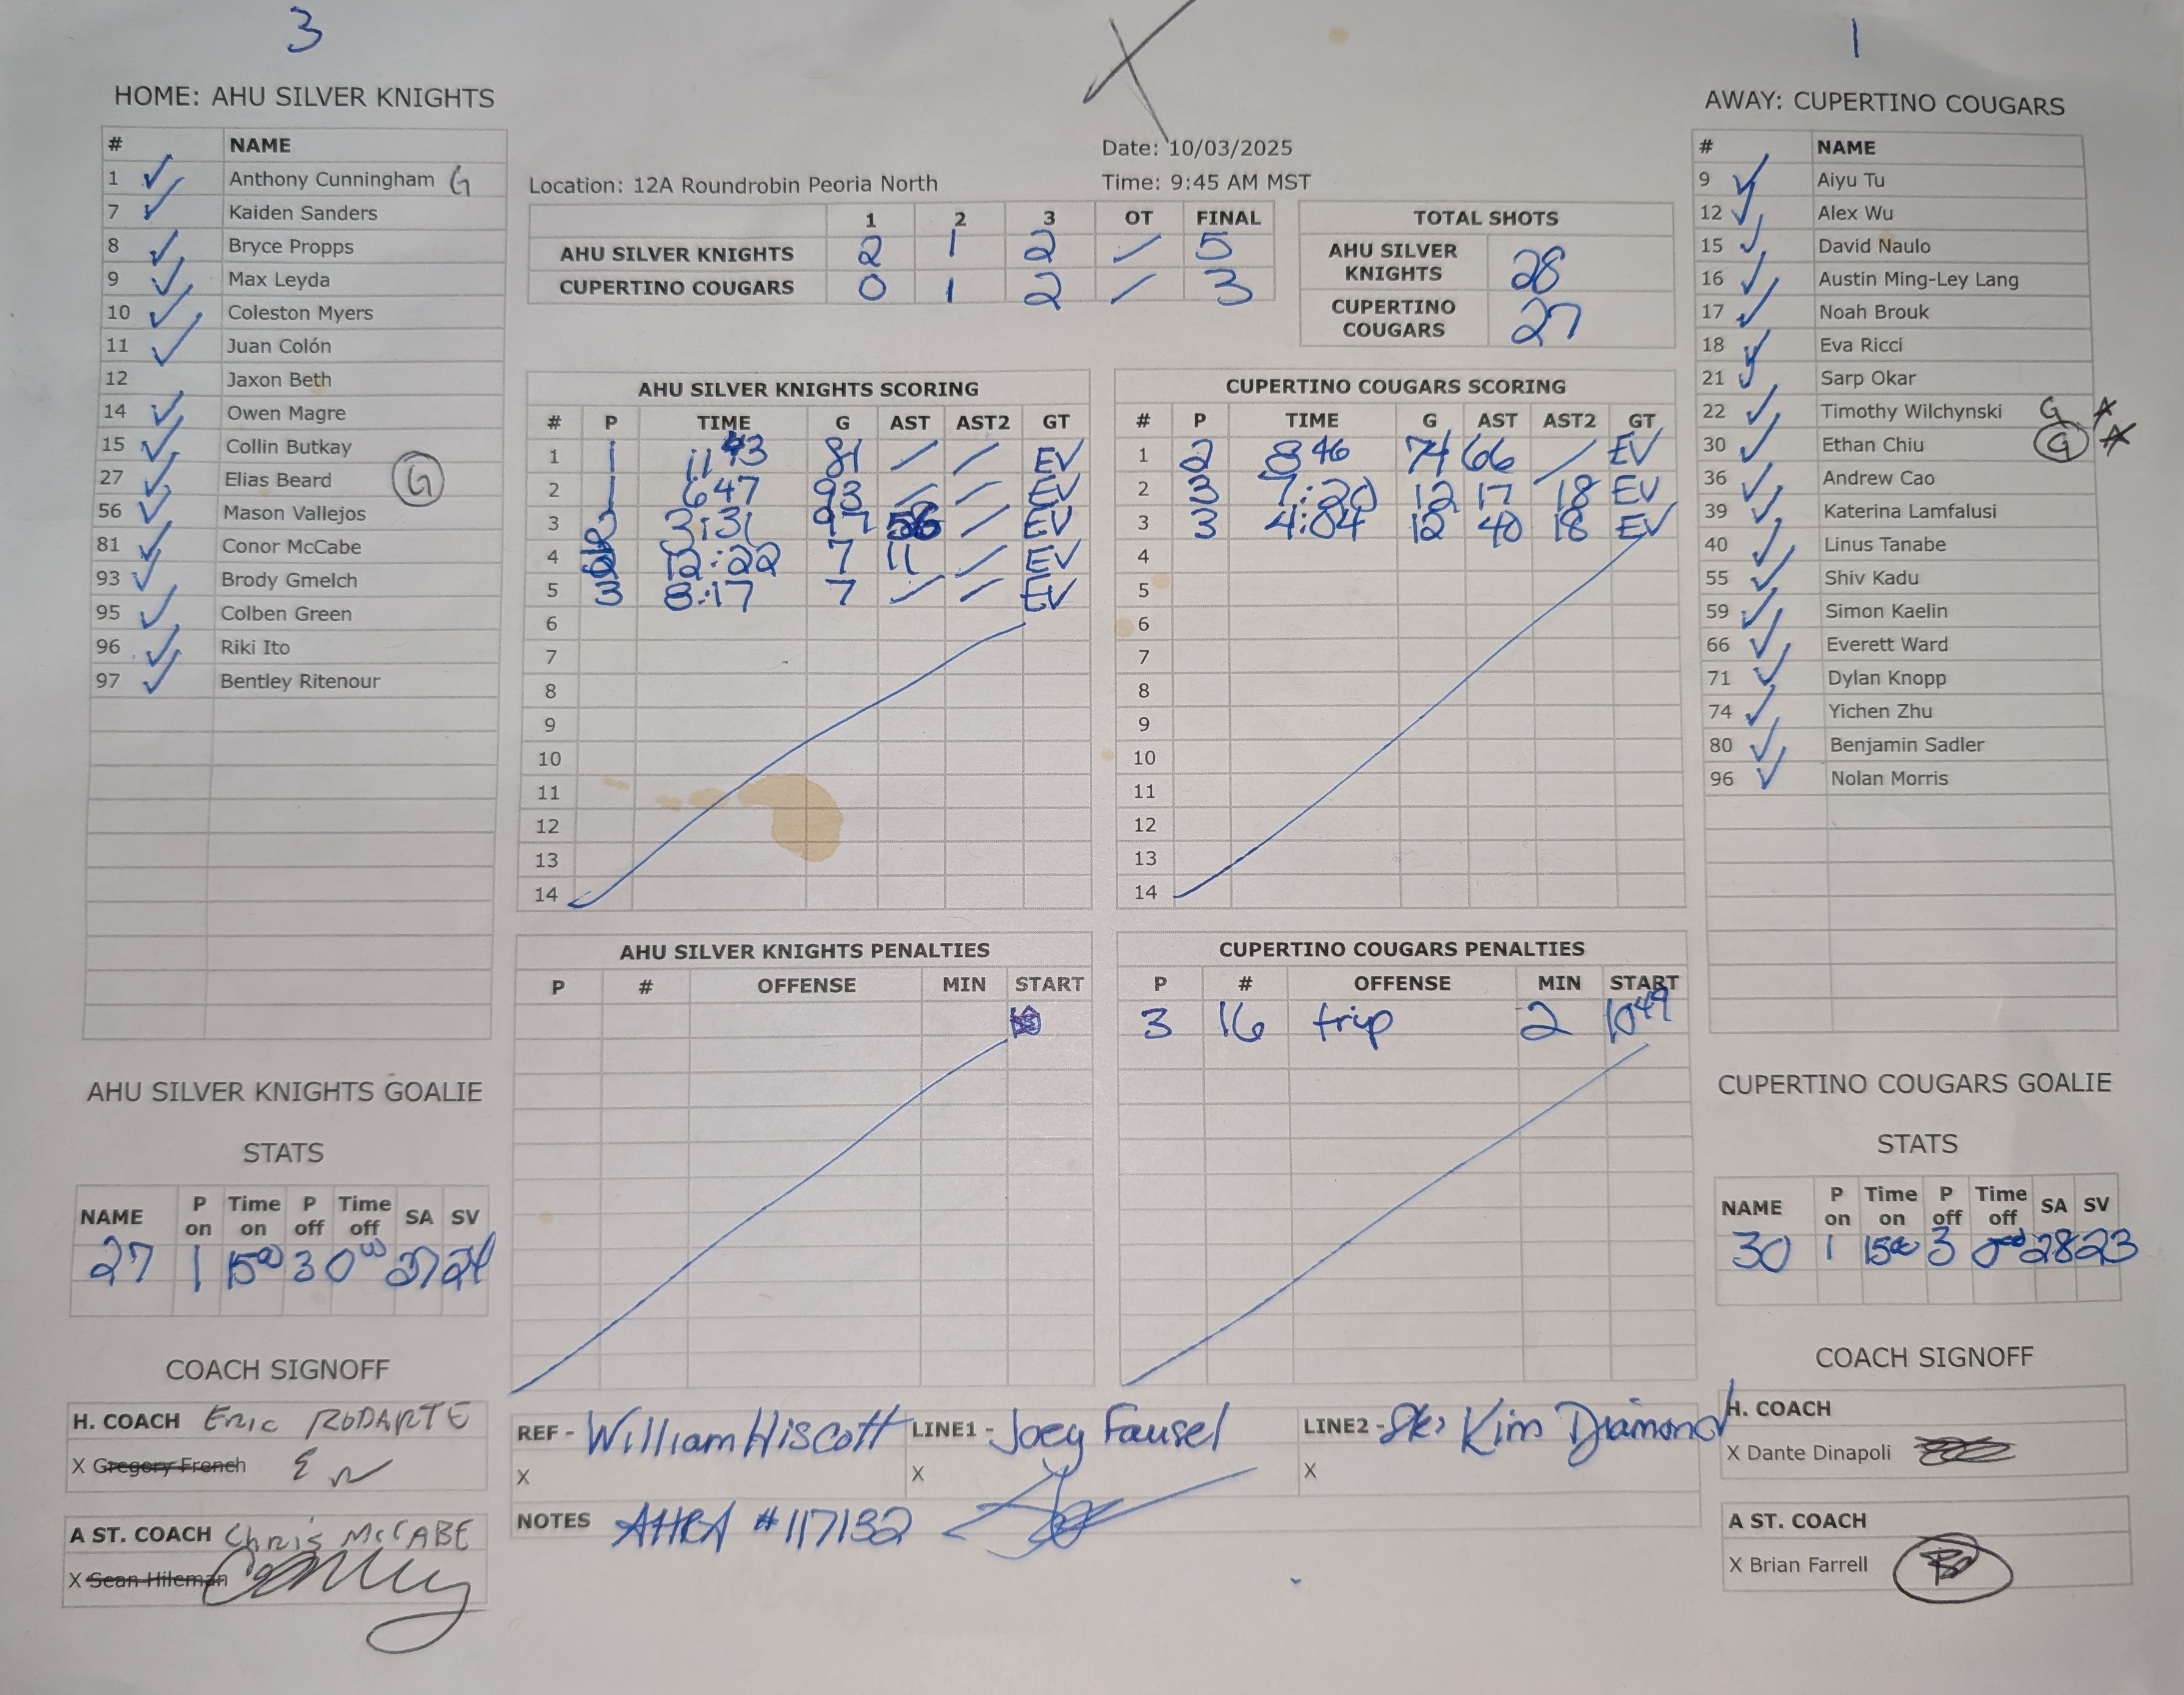 3
1
HOME: AHU SILVER KNIGHTS
# NAME
1 Anthony Cunningham G
7 Kaiden Sanders
8 Bryce Propps
9 Max Leyda
10 Coleston Myers
11 Juan Colón
12 Jaxon Beth
14 Owen Magre
15 Collin Butkay
27 Elias Beard G
56 Mason Vallejos
81 Conor McCabe
93 Brody Gmelch
95 Colben Green
96 Riki Ito
97 Bentley Ritenour
Date: 10/03/2025
Location: 12A Roundrobin Peoria North
Time: 9:45 AM MST
1 2 3 OT FINAL
AHU SILVER KNIGHTS 2 1 2 / 5
CUPERTINO COUGARS 0 1 2 / 3
TOTAL SHOTS
AHU SILVER KNIGHTS 28
CUPERTINO COUGARS 27
AHU SILVER KNIGHTS SCORING
# P TIME G AST AST2 GT
1 1 11 43 81 / / EV
2 1 6 47 93 / / EV
3 2 3:31 97 56 / EV
4 12:22 7 11 / EV
5 3 8:17 7 / / EV
6
7
8
9
10
11
12
13
14
CUPERTINO COUGARS SCORING
# P TIME G AST AST2 GT
1 2 8 46 74 66 / EV
2 3 7:20 12 17 18 EV
3 3 4:04 12 40 18 EV
4
5
6
7
8
9
10
11
12
13
14
AWAY: CUPERTINO COUGARS
# NAME
9 Aiyu Tu
12 Alex Wu
15 David Naulo
16 Austin Ming-Ley Lang
17 Noah Brouk
18 Eva Ricci
21 Sarp Okar
22 Timothy Wilchynski G
30 Ethan Chiu G
36 Andrew Cao
39 Katerina Lamfalusi
40 Linus Tanabe
55 Shiv Kadu
59 Simon Kaelin
66 Everett Ward
71 Dylan Knopp
74 Yichen Zhu
80 Benjamin Sadler
96 Nolan Morris
AHU SILVER KNIGHTS PENALTIES
P # OFFENSE MIN START
CUPERTINO COUGARS PENALTIES
P # OFFENSE MIN START
3 16 trip 2 10 49
AHU SILVER KNIGHTS GOALIE
STATS
NAME P on Time on P off Time off SA SV
27 1 15 00 3 0 00 27 24
CUPERTINO COUGARS GOALIE
STATS
NAME P on Time on P off Time off SA SV
30 1 15 00 3 0 00 28 23
COACH SIGNOFF
H. COACH Eric RODARTE
X Gregory French
A ST. COACH Chris McCABE
X Sean Hileman
REF - William Hiscott
X
LINE1 - Joey Fausel
X
LINE2 - Sk: Kim Diamond
X
NOTES #117132
COACH SIGNOFF
H. COACH
X Dante Dinapoli
A ST. COACH
X Brian Farrell